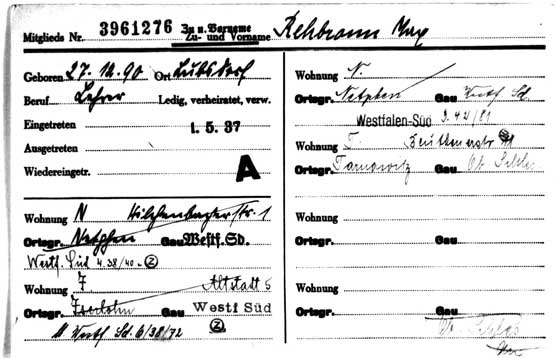 Mitglieds Nr. 3961276 Zu u. Vorname
Zu- und Vorname Rehbrann Max
Geboren 27. 12. 90 Ort
Beruf Lehrer Ledig, verheiratet, verw.
Eingetreten 1. 5. 37
Ausgetreten
Wiedereingetr. A
Wohnung N Str. 1
Ortsgr. Netphen Gau Westf. Sd.
Westf. Süd 4.38/40. - 2
Wohnung J Altstadt 5
Ortsgr. Iserlohn Gau Westf Süd
Westf Sd. 6/38/72 2
Wohnung N.
Ortsgr. Netphen Gau Westf Sd.
Westfalen-Süd 3.42/81
Wohnung T. Beuthenerstr
Ortsgr. Tarnowitz Gau
Wohnung
Ortsgr. Gau
Wohnung
Ortsgr. Gau